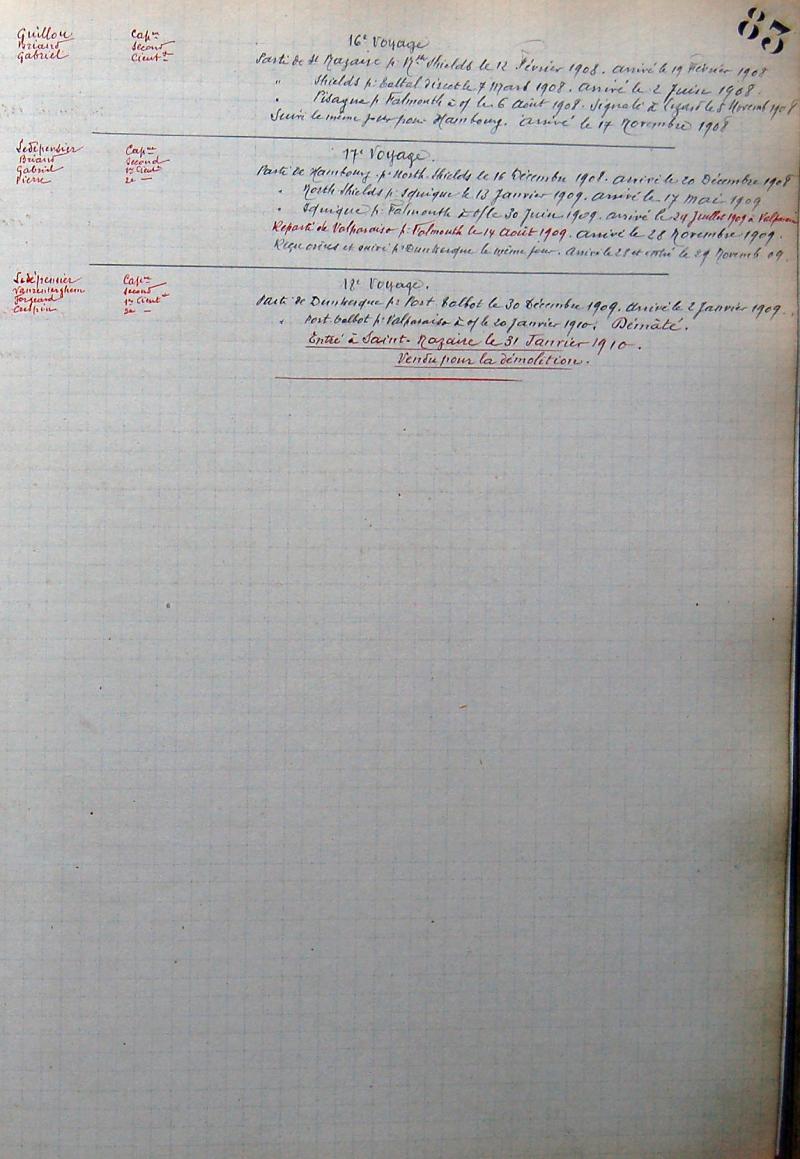 83
Guillou Capne
Briand Second
Gabriel Lieutt
16e Voyage
Parti de St Nazaire pr Nth Shields le 12 Février 1908. arrivé le 19 Février 1908
" Shields pr Taltal direct le 7 Mars 1908. arrivé le 2 Juin 1908.
" Pisagua pr Falmouth à of le 6 Août 1908. Signalé à Lizard le 8 Novemb 1908
Suivi le même jour pour Hambourg. arrivé le 17 Novembre 1908
Ledépensier Capne
Briand Second
Gabriel 1r Lieutt
Pierre 2e —
17e Voyage.
Parti de Hambourg pr North Shields le 16 Décembre 1908. arrivé le 20 Décembre 1908
" North Shields pr Iquique le 13 Janvier 1909. arrivé le 17 Mai 1909
" Iquique pr Falmouth à of le 30 Juin 1909. arrivé le 24 Juillet 1909 à Valparaiso
Reparti de Valparaiso pr Falmouth le 14 Août 1909. arrivé le 28 Novembre 1909.
Reçu ordres et suivi pr Dunkerque le même jour. Arrivé le 28 et entré le 29 Novemb 09.
Ledépensier Capne
Second
1r Lieutt
Crespin 2e —
18e Voyage.
Parti de Dunkerque pr Port Talbot le 30 Décembre 1909. arrivé le 2 Janvier 1909.
" Port Talbot pr Valparaiso à of le 20 Janvier 1910. Démâté.
Entré à Saint-Nazaire le 31 Janvier 1910.
Vendu pour la démolition.